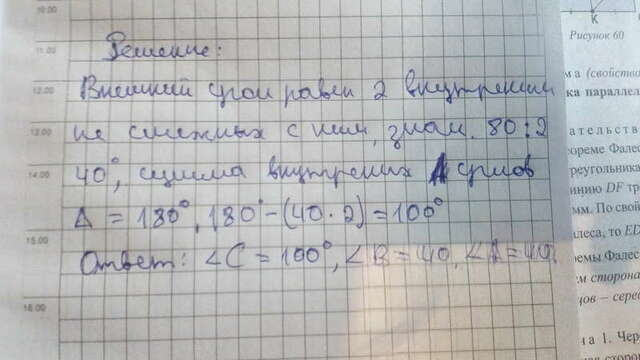 10.00
Решение:
К
Рисунок 60
11.00
ма (свойство
12.00
Внешний угол равен 2 внутренним
ка параллел
13.00
не смежных с ним, знач. 80:2
ательств
ореме Фалес
14.00
40°, сумма внутрених углов
реугольника
инию DF тр
Δ = 180°, 180° - (40·2) = 100°
мм. По свой
15.00
алеса, то ED
Ответ: ∠C = 100°, ∠B = 40, ∠A = 40.
ремы Фалес
ем сторона
цов – серед
16.00
на 1. Чер